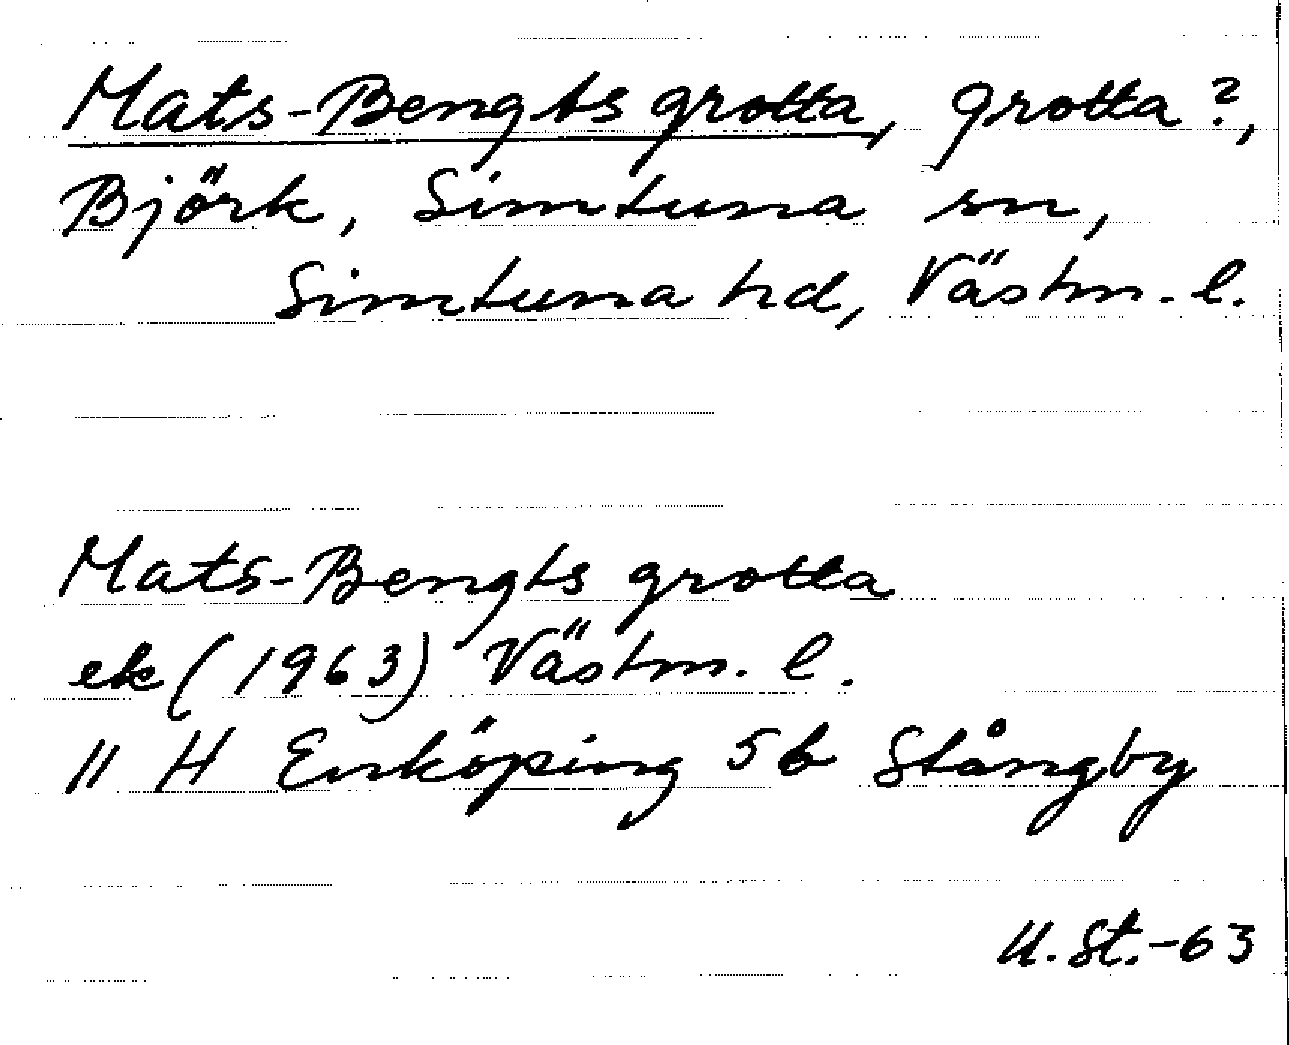 Mats-Bengts grotta, grotta?,
Björk, Simtuna sn,
Simtuna hd, Västm. l.
Mats-Bengts grotta
ek (1963) Västm. l.
11 H Enköping 5b Stångby
U. St.-63